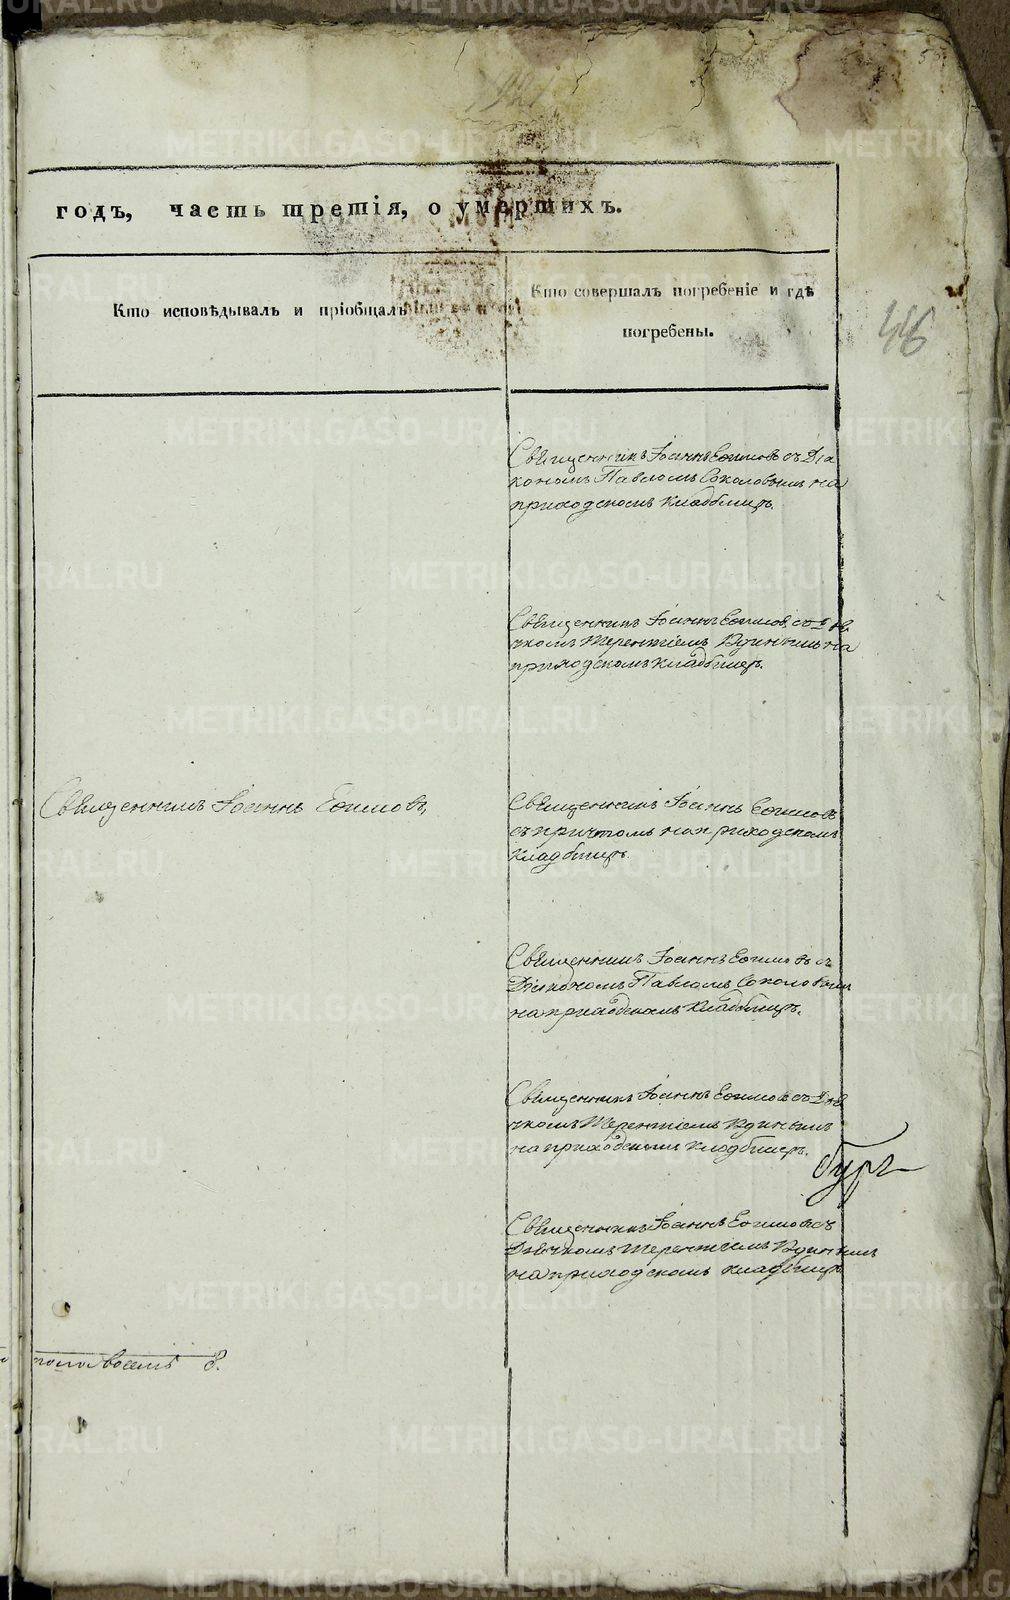 годъ, часть третія, о умершихъ.
Кто исповѣдывалъ и пріобщалъ
Кто совершалъ погребеніе и гдѣ
погребены.
446
Священникъ Іоаннъ Ефимовъ съ Діа
кономъ Павломъ Соколовымъ на
приходскомъ кладбищѣ.
Священникъ Іоаннъ Ефимовъ съ Дья
чкомъ Терентіемъ на
приходскомъ кладбищѣ.
Священникъ Іоаннъ Ефимовъ,
Священникъ Іоаннъ Ефимовъ
съ причтомъ на приходскомъ
кладбищѣ.
Священникъ Іоаннъ Ефимовъ съ
Діакономъ Павломъ Соколовым
на приходскомъ кладбищѣ.
Священникъ Іоаннъ Ефимовъ съ Дья
чкомъ Терентіемъ
на приходскомъ кладбищѣ.
Священникъ Іоаннъ Ефимовъ съ
Дьячкомъ Терентіемъ
на приходскомъ кладбищѣ
восемь 8.
METRIKI.GASO-URAL.RU